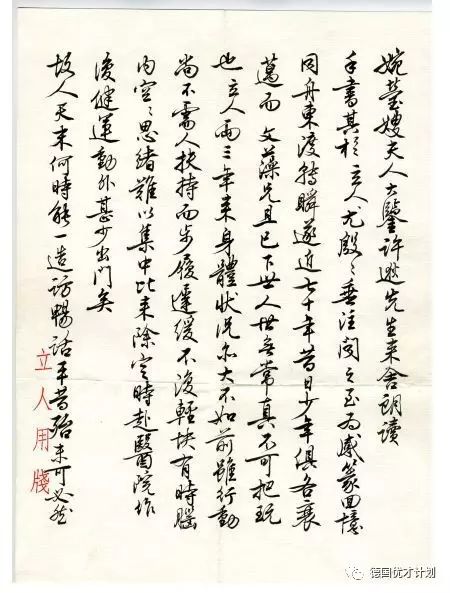 婉瑩嫂夫人大鑒許逖先生来舍朗讀
手書其於立人尤殷々垂注聞之至为感篆回憶
同舟東渡轉瞬遂近七十年昔日少年俱各衰
邁而 文藻兄且已下世人世無常真不可把玩
也立人兩三年来身體狀况亦大不如前雖行動
尚不需人扶持而步履遲緩不復輕快有時腦
内空々思緒難以集中比来除定時赴醫院作
復健運動外甚少出門矣
故人天末何時能一造訪暢話平昔殆未可必然
立人用牋
德国优才计划